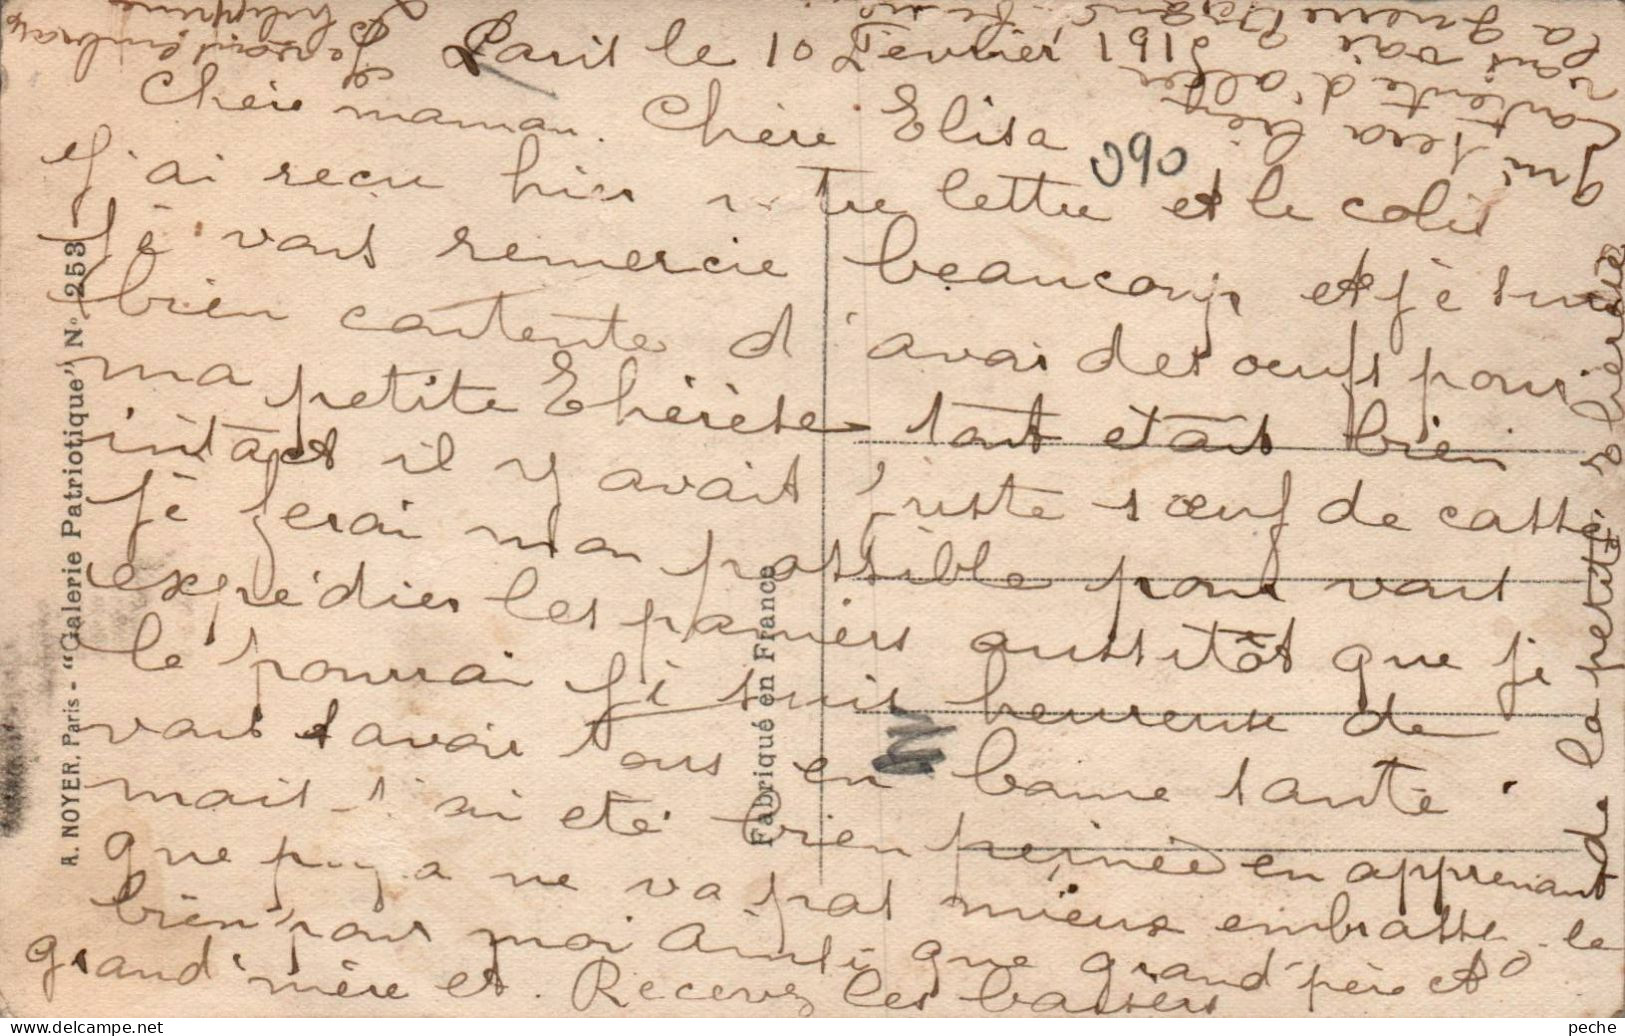 Paris le 10 Fevrier 191
Chère maman. Chère Elisa
J'ai recu hier votre lettre et le colis
Je vous remercie beaucoup et je suis
bien contente d'avoir des oeufs pour
ma petite Thérèse tout etait bien
intact il y avait juste 1 œuf de cassé
Je ferai mon possible pour vous
expédier les paniers aussitôt que je
le pourrai Je suis heureuse de
vous savoir tous en bonne santé
mais j'ai été bien peinée en apprenant
que ne va pas mieux embrasse le
bien pour moi Ainsi que grand'père et
grand'mère et. Recevez les baisers
de la petite
qui sera bien
contente d'aller
vous voir
la guerre
090
A. NOYER, Paris - "Galerie Patriotique" N° 253
Fabriqué en France
peche